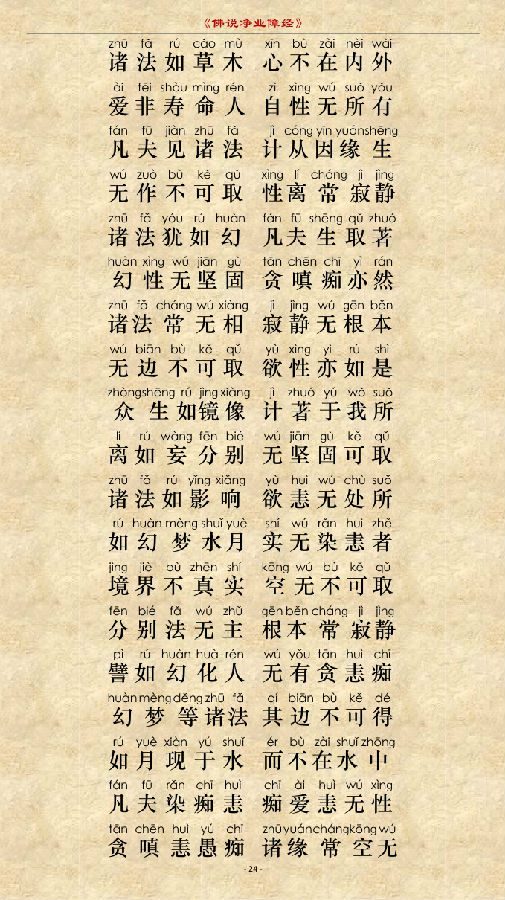 《佛说净业障经》
zhū fǎ rú cǎo mù xīn bù zài nèi wài
诸法如草木 心不在内外
ài fēi shòu mìng rén zì xìng wú suǒ yǒu
爱非寿命人 自性无所有
fán fū jiàn zhū fǎ jì cóng yīn yuán shēng
凡夫见诸法 计从因缘生
wú zuò bù kě qǔ xìng lí cháng jì jìng
无作不可取 性离常寂静
zhū fǎ yóu rú huàn fán fū shēng qǔ zhuó
诸法犹如幻 凡夫生取著
huàn xìng wú jiān gù tān chēn chī yì rán
幻性无坚固 贪嗔痴亦然
zhū fǎ cháng wú xiàng jì jìng wú gēn běn
诸法常无相 寂静无根本
wú biān bù kě qǔ yù xìng yì rú shì
无边不可取 欲性亦如是
zhòng shēng rú jìng xiàng jì zhuó yú wǒ suǒ
众生如镜像 计著于我所
lí rú wàng fēn bié wú jiān gù kě qǔ
离如妄分别 无坚固可取
zhū fǎ rú yǐng xiǎng yù huì wú chù suǒ
诸法如影响 欲恚无处所
rú huàn mèng shuǐ yuè shí wú rǎn huì zhě
如幻梦水月 实无染恚者
jìng jiè bù zhēn shí kōng wú bù kě qǔ
境界不真实 空无不可取
fēn bié fǎ wú zhǔ gēn běn cháng jì jìng
分别法无主 根本常寂静
pì rú huàn huà rén wú yǒu tān huì chī
譬如幻化人 无有贪恚痴
huàn mèng děng zhū fǎ qí biān bù kě dé
幻梦等诸法 其边不可得
rú yuè xiàn yú shuǐ ér bù zài shuǐ zhōng
如月现于水 而不在水中
fán fū rǎn chī huì chī ài huì wú xìng
凡夫染痴恚 痴爱恚无性
tān chēn huì yú chī zhū yuán cháng kōng wú
贪嗔恚愚痴 诸缘常空无
- 24 -